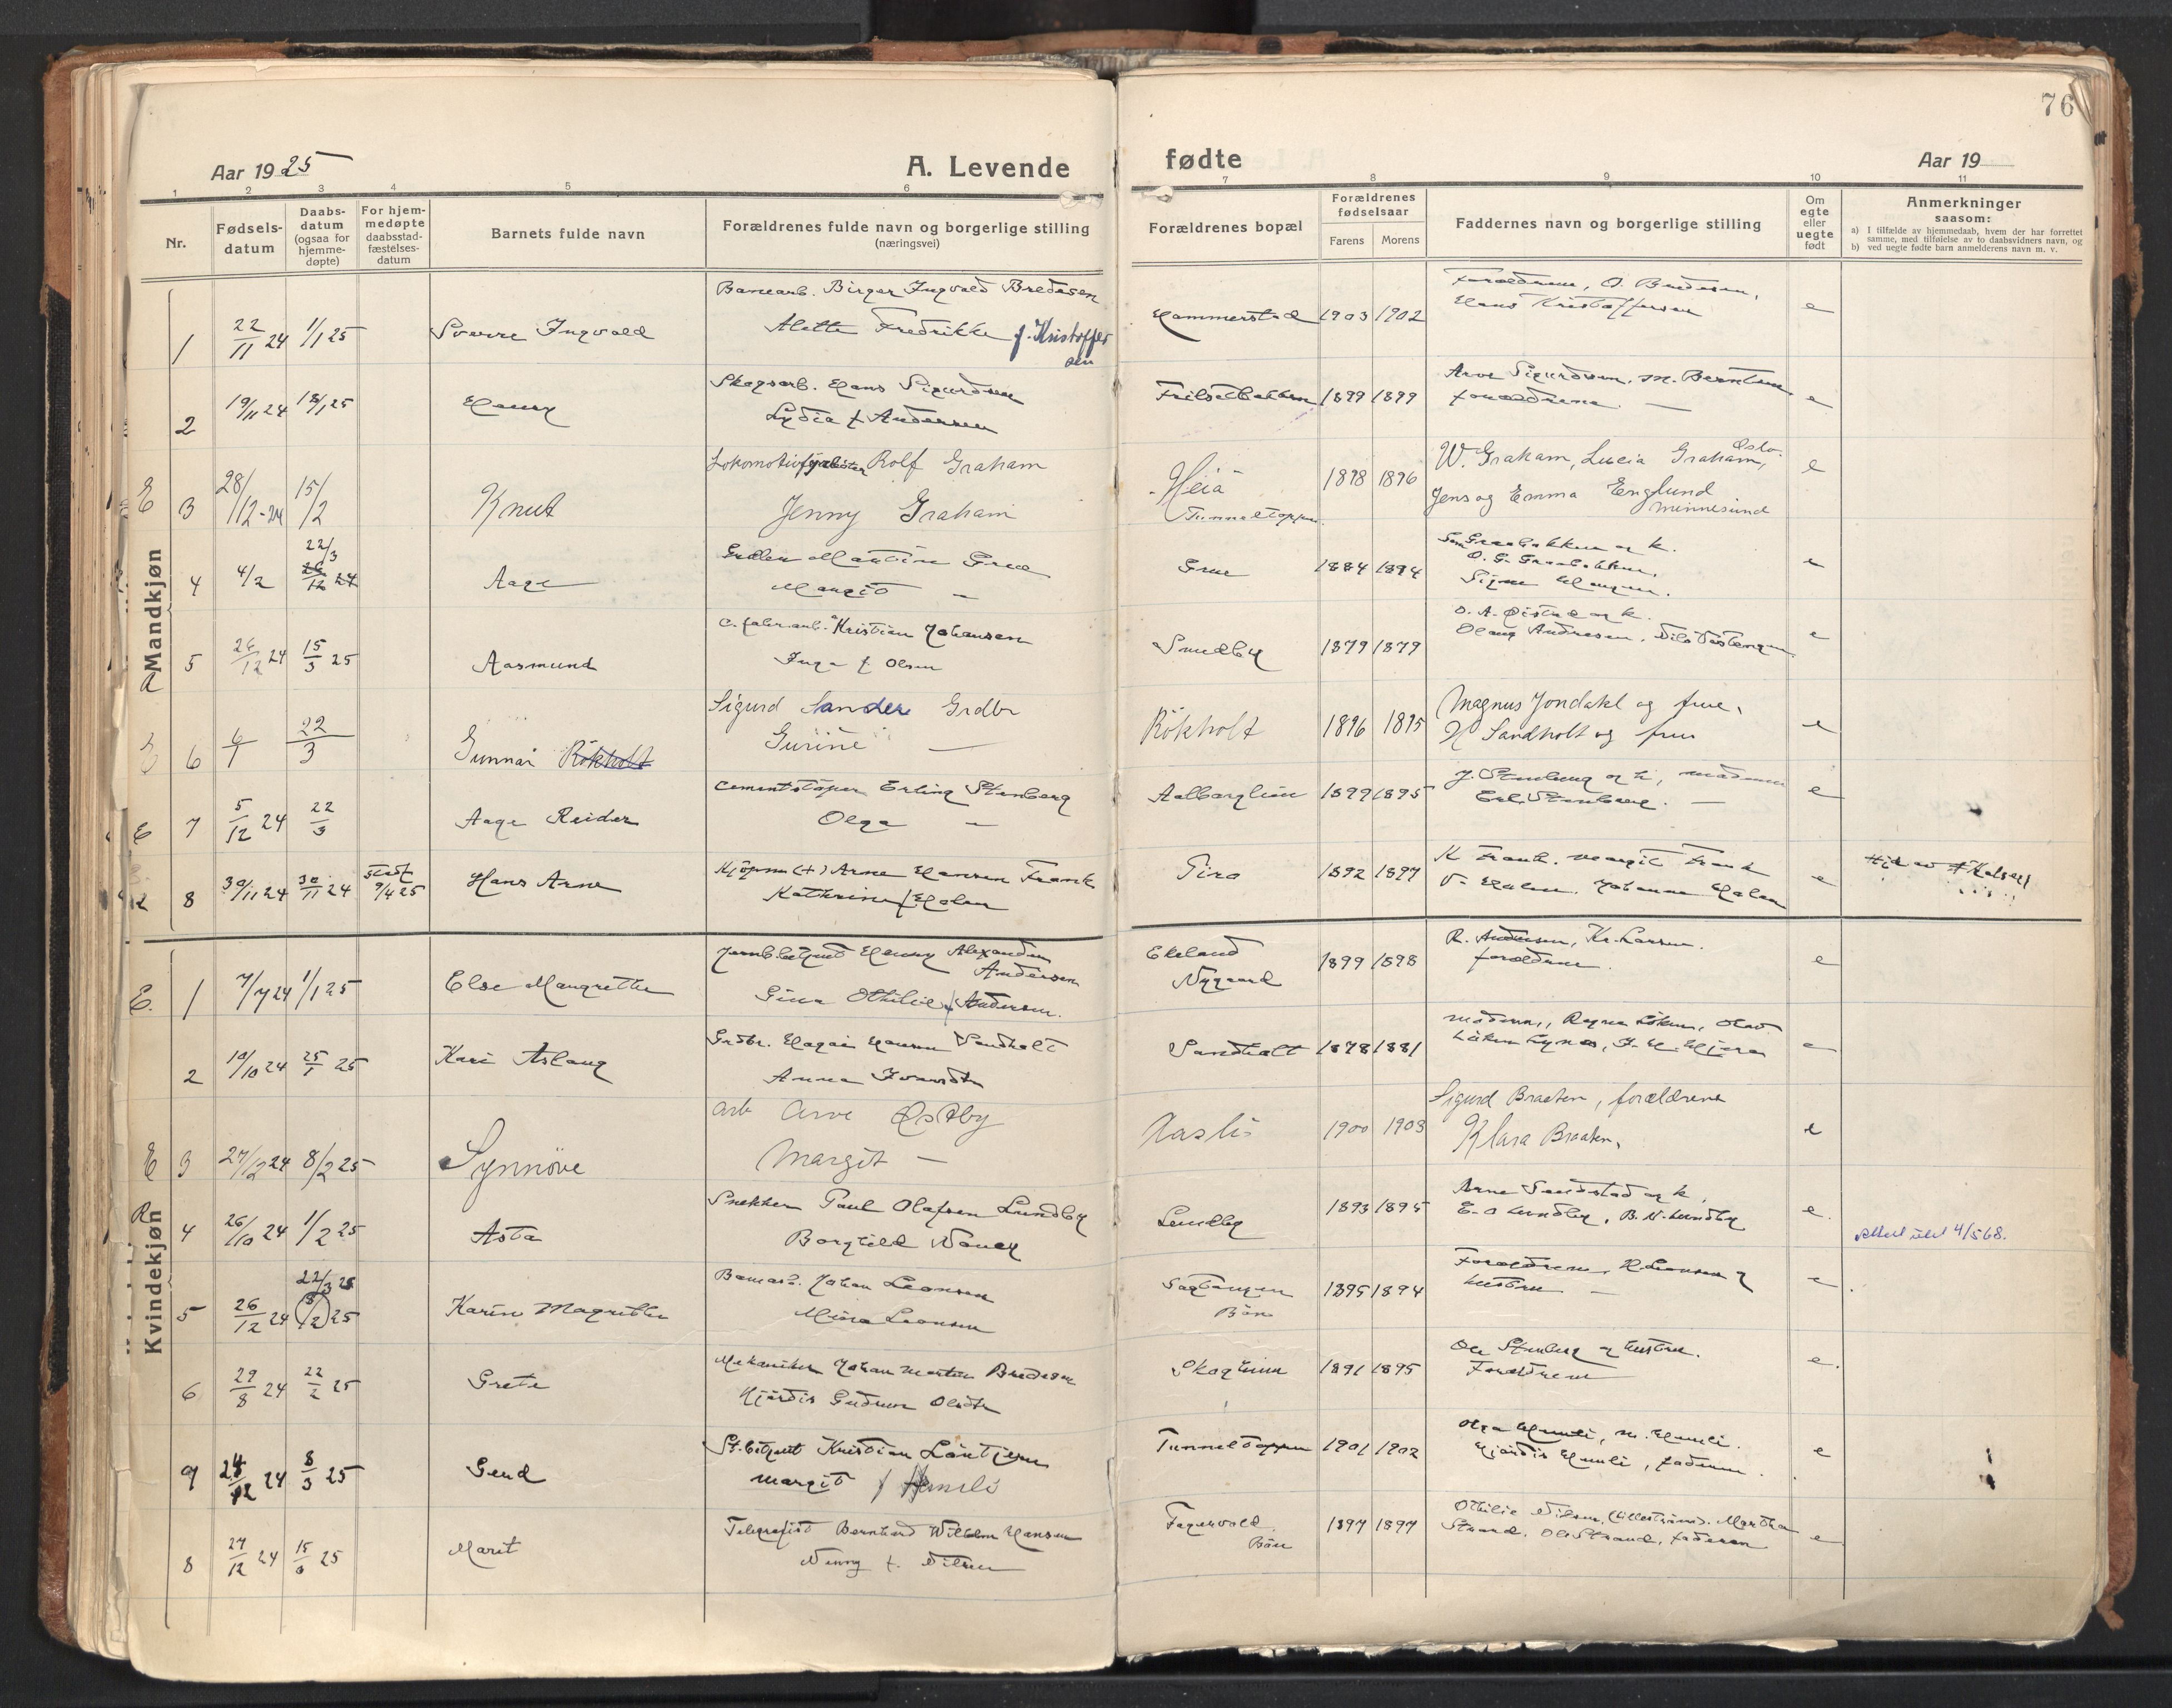 76
Aar 1925
A. Levende
fødte
Aar 19
1 2 3 4 5 6 7 8 9 10 11
Nr.
Fødsels-
datum
Daabs-
datum
(ogsaa for
hjemme-
døpte)
For hjem-
medøpte
daabsstad-
fæstelses-
datum
Barnets fulde navn
Forældrenes fulde navn og borgerlige stilling
(næringsvei)
Forældrenes bopæl
Forældrenes
fødselsaar
Farens
Morens
Faddernes navn og borgerlige stilling
Om
egte
eller
uegte
født
Anmerkninger
saasom:
a) I tilfælde av hjemmedaab, hvem der har forrettet
samme, med tilføielse av to daabsvidners navn, og
b) ved uegte fødte barn anmelderens navn m. v.
Mandkjøn
1 22/11 24 1/1 25 Sverre Ingvald
Banearb. Birger Ingvald Bredesen
Alette Fredrikke f. Kristoffersen
Hammerstad 1903 1902
Forældrene, O. Bredesen,
Hans Kristoffersen
e
2 19/11 24 18/1 25 Henry
Skogsarb. Hans Sigurdsen
Lydia f. Andersen
1899 1899
Arve Sigurdsen, M. Berntsen
forældrene
e
E 3 28/12-24 15/2 Knut
Rolf Graham
Jenny Graham
Heia
Tunneltoppen
1898 1896
W. Graham, Lucia Graham, Oslo.
Jens og Emma Englund
Minnesund
e
4 4/2 22/3 Aage
Martin Grue
Margit —
Grue 1884 1894
O. G. Graabakken,
Signe Haugen.
e
5 26/12 24 15/3 25 Aasmund
Kristian Johansen
Inga f. Olsen
Sundby 1879 1879
O. A. Øistad og k.
Olaug Andresen,
e
E 6 6/1 22/3 Gunnar Rökholt
Sigurd Sander Grdbr
Gurine —
Rökholt 1896 1895
Magnus Jondahl og frue,
H Sandholt og frue
e
E 7 5/12 24 22/3 Aage Reidar
Cementstöper Erling Stenberg
Olga —
1899 1895
J. Stenberg og h.,
Erl. Stenberg. —
e
8 30/11 24 30/11 24 Stadf. 9/4 25 Hans Arne
Kjöpm (+) Arne Hansen Frank
Kathrine f. Holm
1892 1897
K Frank. Margit Frank
e
Kvindekjøn
E. 1 7/7 24 1/1 25 Else Margrethe
Jernb.betjent Henry Alexander
Andersen
Gina Othilie f. Andersen.
Ekeland
Nygaard
1899 1898
R. Andersen, Kr. Larsen.
forældrene.
e
2 10/10 24 25/1 25 Kari Aslaug
Grdbr. Hagai Hansen Sandholt
Anna Ivarsdtr
Sandholt 1878 1881
moderen, Ragna Löken, Olav
e
E 3 27/12 24 8/2 25 Synnöve
Arb Arve Østby
Margit —
Aasli 1900 1903
Sigurd Braaten, forældrene
Klara Braaten,
e
R 4 26/10 24 1/2 25 Asta
Snekker Paul Olafsen Lundby
Borghild Nancy
Lundby 1893 1895
Arne Sandstad og k.
E. O Lundby, B. N. Lundby
e.
4/5 68.
5 26/12 24 22/3 25 8/2 25 Karin Magrethe
Banearb. Johan Leonsen
Leonsen
Bön
1895 1894
Forældrene, Leonsen og
hustru —
e
6 29/8 24 22/2 25 Grete
Mekaniker Johan Morten Bredesen
Hjördis Gudrun Olsdtr
Skogheim 1891 1895
Ole Stenberg og hustru.
Forældrene
e.
9 24/12 24 8/3 25 Gerd
St.betjent Kristian Löntjern
Margit f. Hemli
Tunneltoppen 1901 1902
Olga Hemli, M. Hemli.
Hjördis Hemli, faderen.
e
8 27/12 24 15/3 25 Marit
Telegrafist Bernhard Wilhelm Hansen
Nenny f. Nilsen
Fagervold
Bön
1897 1897
Othilie Nilsen, (Lilleström). Martha
Strand, Ole Strand, faderen
e